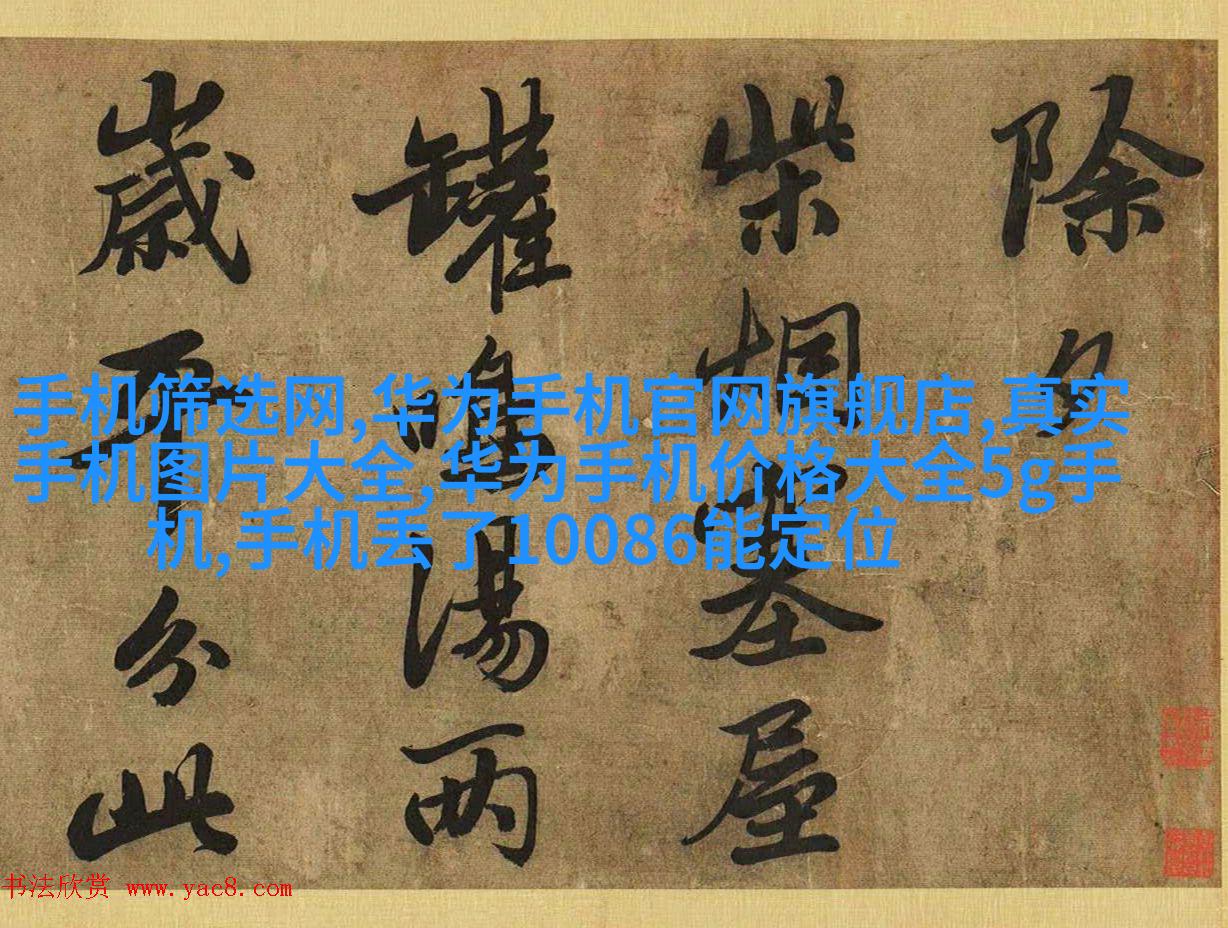 除夕
柴烟屋
罐鳴湯两
歲平分此
手机筛选网,华为手机官网旗舰店,真实
手机图片大全,华为手机价格大全5g手
机,手机丢了10086能定位
书法欣赏 www.yac8.com